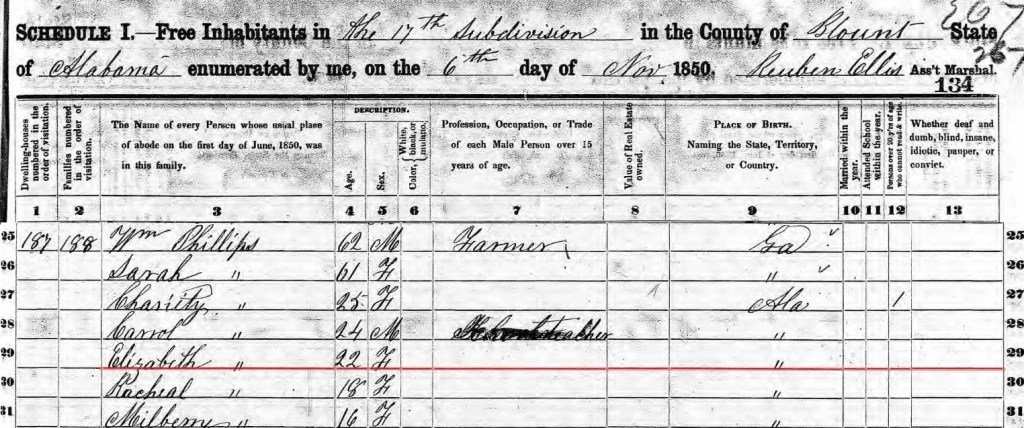 267
SCHEDULE I.—Free Inhabitants in the 17th Subdivision in the County of Blount State
267
of Alabama enumerated by me, on the 6th day of Nov. 1850. Reuben Ellis Ass't Marshal.
134
Dwelling-houses numbered in the order of visitation.
Families numbered in the order of visitation.
The Name of every Person whose usual place of abode on the first day of June, 1850, was in this family.
DESCRIPTION.
Age.
Sex.
Color, { White, black, or mulatto.
Profession, Occupation, or Trade of each Male Person over 15 years of age.
Value of Real Estate owned.
PLACE OF BIRTH. Naming the State, Territory, or Country.
Married within the year.
Attended School within the year.
Persons over 20 y'rs of age who cannot read & write.
Whether deaf and dumb, blind, insane, idiotic, pauper, or convict.
1 2 3 4 5 6 7 8 9 10 11 12 13
25 187 188 Wm Phillips 62 M Farmer Ga 25
26 Sarah " 61 F " 26
27 Charity " 25 F Ala 1 27
28 Carrol " 24 M " 28
29 Elizabeth " 22 F " 29
30 Racheal " 18 F " 30
31 Milberry " 16 F " 31